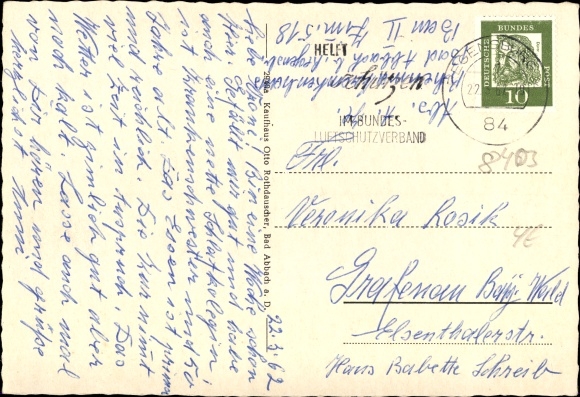 22.3.62
Liebe Vroni! Bin eine Woche schon
hier. Gefällt mir gut und habe
auch eine nette Schlafkollegin
ist Krankenschwester und 60
Jahre alt. Das Essen ist prima
und reichlich. Die Kur nimmt
viel Zeit in Anspruch. Das
Wetter ist ziemlich gut aber
noch kalt. Lasse auch mal
von Dir hören und grüße
Foto u. Kaufhaus Otto Rothdauscher, Bad Abbach a. D.
Abs.
Bad Abbach b. Regensb.
Bau II Zim. 518
HELFT
IM BUNDES-
LUFTSCHUTZVERBAND
84
DEUTSCHE BUNDESPOST
10
8403
4E
Frl.
Veronika Rosik
Grafenau Bay. Wald
Elsenthalerstr.
Haus Babette Schreib